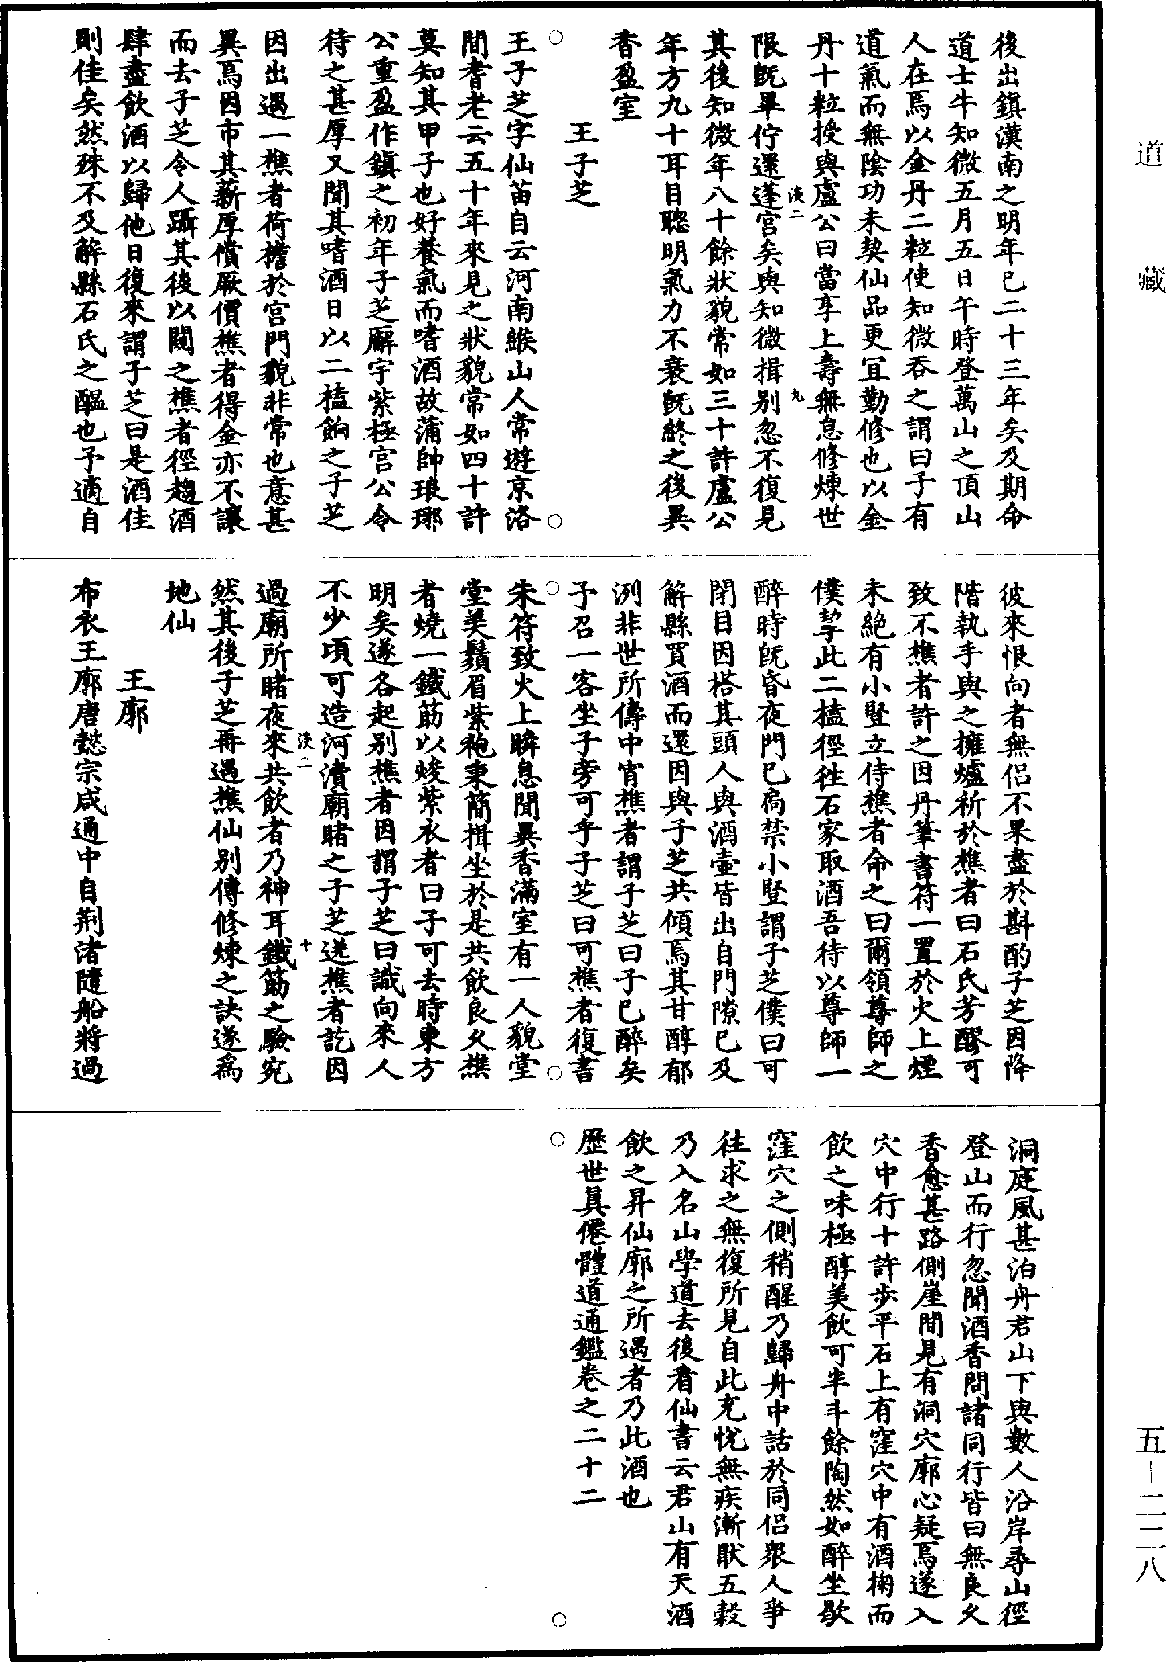 道藏
後出鎮漢南之明年已二十三年矣及期命
道士牛知微五月五日午時登萬山之頂山
人在焉以金丹二粒使知微吞之謂曰子有
道氣而無陰功未契仙品更宜勤修也以金
丹十粒授與盧公曰當享上壽無怠修煉世
限既畢佇還蓬宮矣與知微揖別忽不復見
其後知微年八十餘狀貌常如三十許盧公
年方九十耳目聰明氣力不衰既終之後異
香盈室
王子芝
王子芝字仙苗自云河南緱山人常遊京洛
間耆老云五十年來見之狀貌常如四十許
莫知其甲子也好養氣而嗜酒故蒲帥琅琊
公重盈作鎮之初年子芝廨宇紫極宮公令
待之甚厚又聞其嗜酒日以二榼餉之子芝
因出遇一樵者荷檐於宮門貌非常也意甚
異焉因市其薪厚償厥價樵者得金亦不讓
而去子芝令人躡其後以闚之樵者徑趨酒
肆盡飲酒以歸他日復來謂子芝曰是酒佳
則佳矣然殊不及解縣石氏之醞也予適自
彼來恨向者無侶不果盡於斟酌子芝因降
階執手與之擁爐祈於樵者曰石氏芳醪可
致不樵者許之因丹筆書符一置於火上煙
未絕有小豎立侍樵者命之曰爾領尊師之
僕挈此二榼徑往石家取酒吾待以尊師一
醉時既昏夜門已扃禁小豎謂子芝僕曰可
閉目因搭其頭人與酒壺皆出自門隙已及
解縣買酒而還因與子芝共傾焉其甘醇郁
洌非世所儔中宵樵者謂子芝曰子已醉矣
予召一客坐子旁可乎子芝曰可樵者復書
朱符致火上瞬息聞異香滿室有一人貌堂
堂美鬚眉紫袍秉簡揖坐於是共飲良久樵
者燒一鐵筯以焌紫衣者曰子可去時東方
明矣遂各起別樵者因謂子芝曰識向來人
不少頃可造河瀆廟睹之子芝送樵者訖因
過廟所睹夜來共飲者乃神耳鐵筯之驗宛
然其後子芝再遇樵仙別傳修煉之訣遂為
地仙
王廓
布衣王廓唐懿宗咸通中自荊渚隨船將過
洞庭風甚泊舟君山下與數人沿岸尋山徑
登山而行忽聞酒香問諸同行皆曰無良久
香愈甚路側崖間見有洞穴廓心疑焉遂入
穴中行十許步平石上有窪穴中有酒掬而
飲之味極醇美飲可半斗餘陶然如醉坐歇
窪穴之側稍醒乃歸舟中話於同侶眾人爭
往求之無復所見自此充悅無疾漸厭五穀
乃入名山學道去後看仙書云君山有天酒
飲之昇仙廓之所遇者乃此酒也
歷世真僊體道通鑑卷之二十二
五-二二八